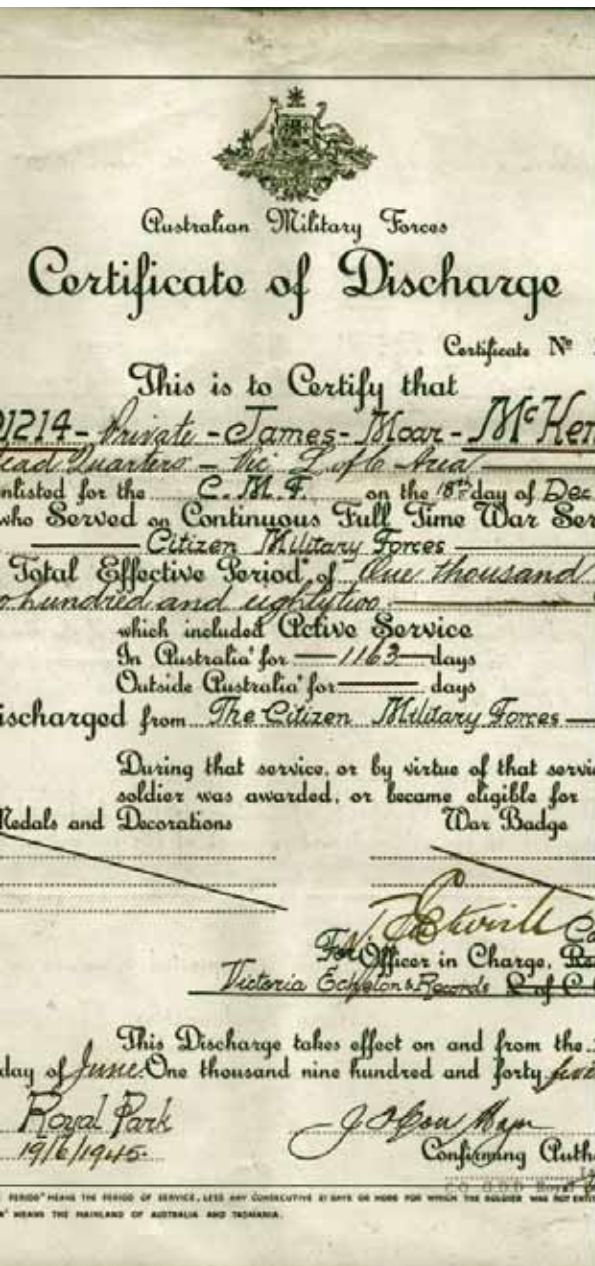 Australian Military Forces
Certificate of Discharge
Certificate Nº
This is to Certify that
1214 - Private - James - Moar - McKen
ead Quarters - Vic L of C Area
nlisted for the C. M. F. on the 18th day of Dec
who Served on Continuous Full Time War Ser
Citizen Military Forces
Total Effective Period of One thousand
o hundred and eightytwo
which included Active Service
In Australia for 1163 days
Outside Australia for days
ischarged from The Citizen Military Forces
During that service, or by virtue of that servi
soldier was awarded, or became eligible for
Medals and Decorations War Badge
For Officer in Charge,
Victoria Echelon & Records L of C
This Discharge takes effect on and from the
day of June One thousand nine hundred and forty five
Royal Park
19/6/1945.
Major
Confirming Auth
PERIOD" MEANS THE PERIOD OF SERVICE, LESS ANY CONSECUTIVE 21 DAYS OR MORE FOR WHICH THE SOLDIER WAS NOT ENTIT
MEANS THE MAINLAND OF AUSTRALIA AND TASMANIA.